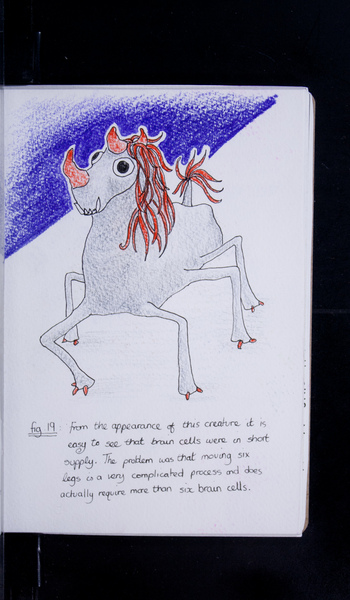 fig 19 : From the appearance of this creature it is
easy to see that brain cells were in short
supply. The problem was that moving six
legs is a very complicated process and does
actually require more than six brain cells.